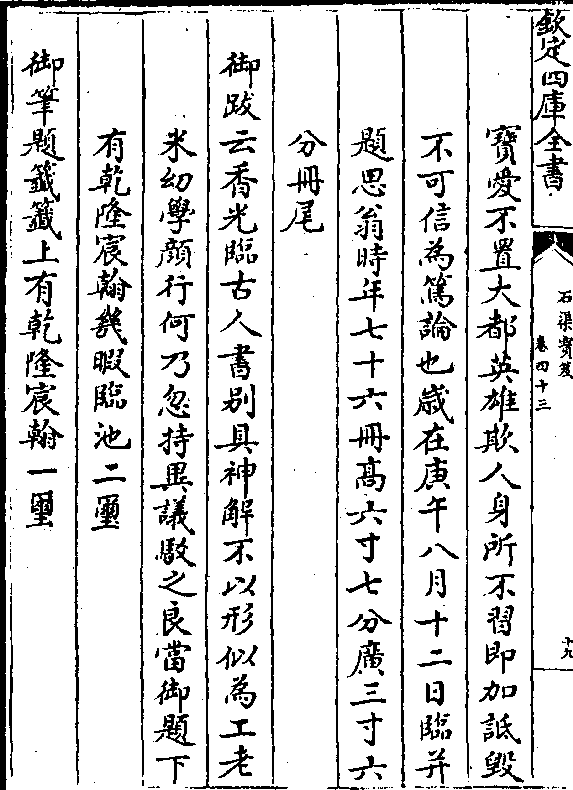 欽定四庫全書
石渠寳笈
卷四十三
十九
寶愛不置大都英雄欺人身所不習即加詆毀
不可信為篤論也歲在庚午八月十二日臨并
題思翁時年七十六冊髙六寸七分廣三寸六
分冊尾
御跋云香光臨古人書别具神解不以形似為工老
米幼學顔行何乃忽持異議駮之良當御題下
有乾隆宸翰幾暇臨池二璽
御筆題籖籖上有乾隆宸翰一璽